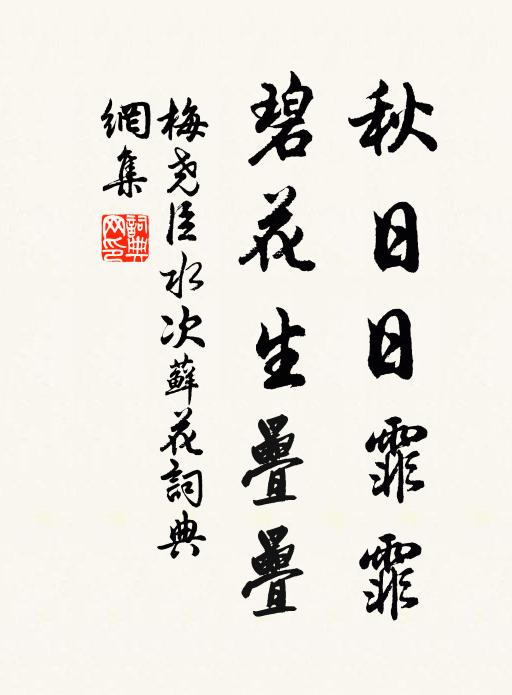 秋日日霏霏
碧花生疊疊
梅堯臣水次蘚花詞典
網集
詞典
网印